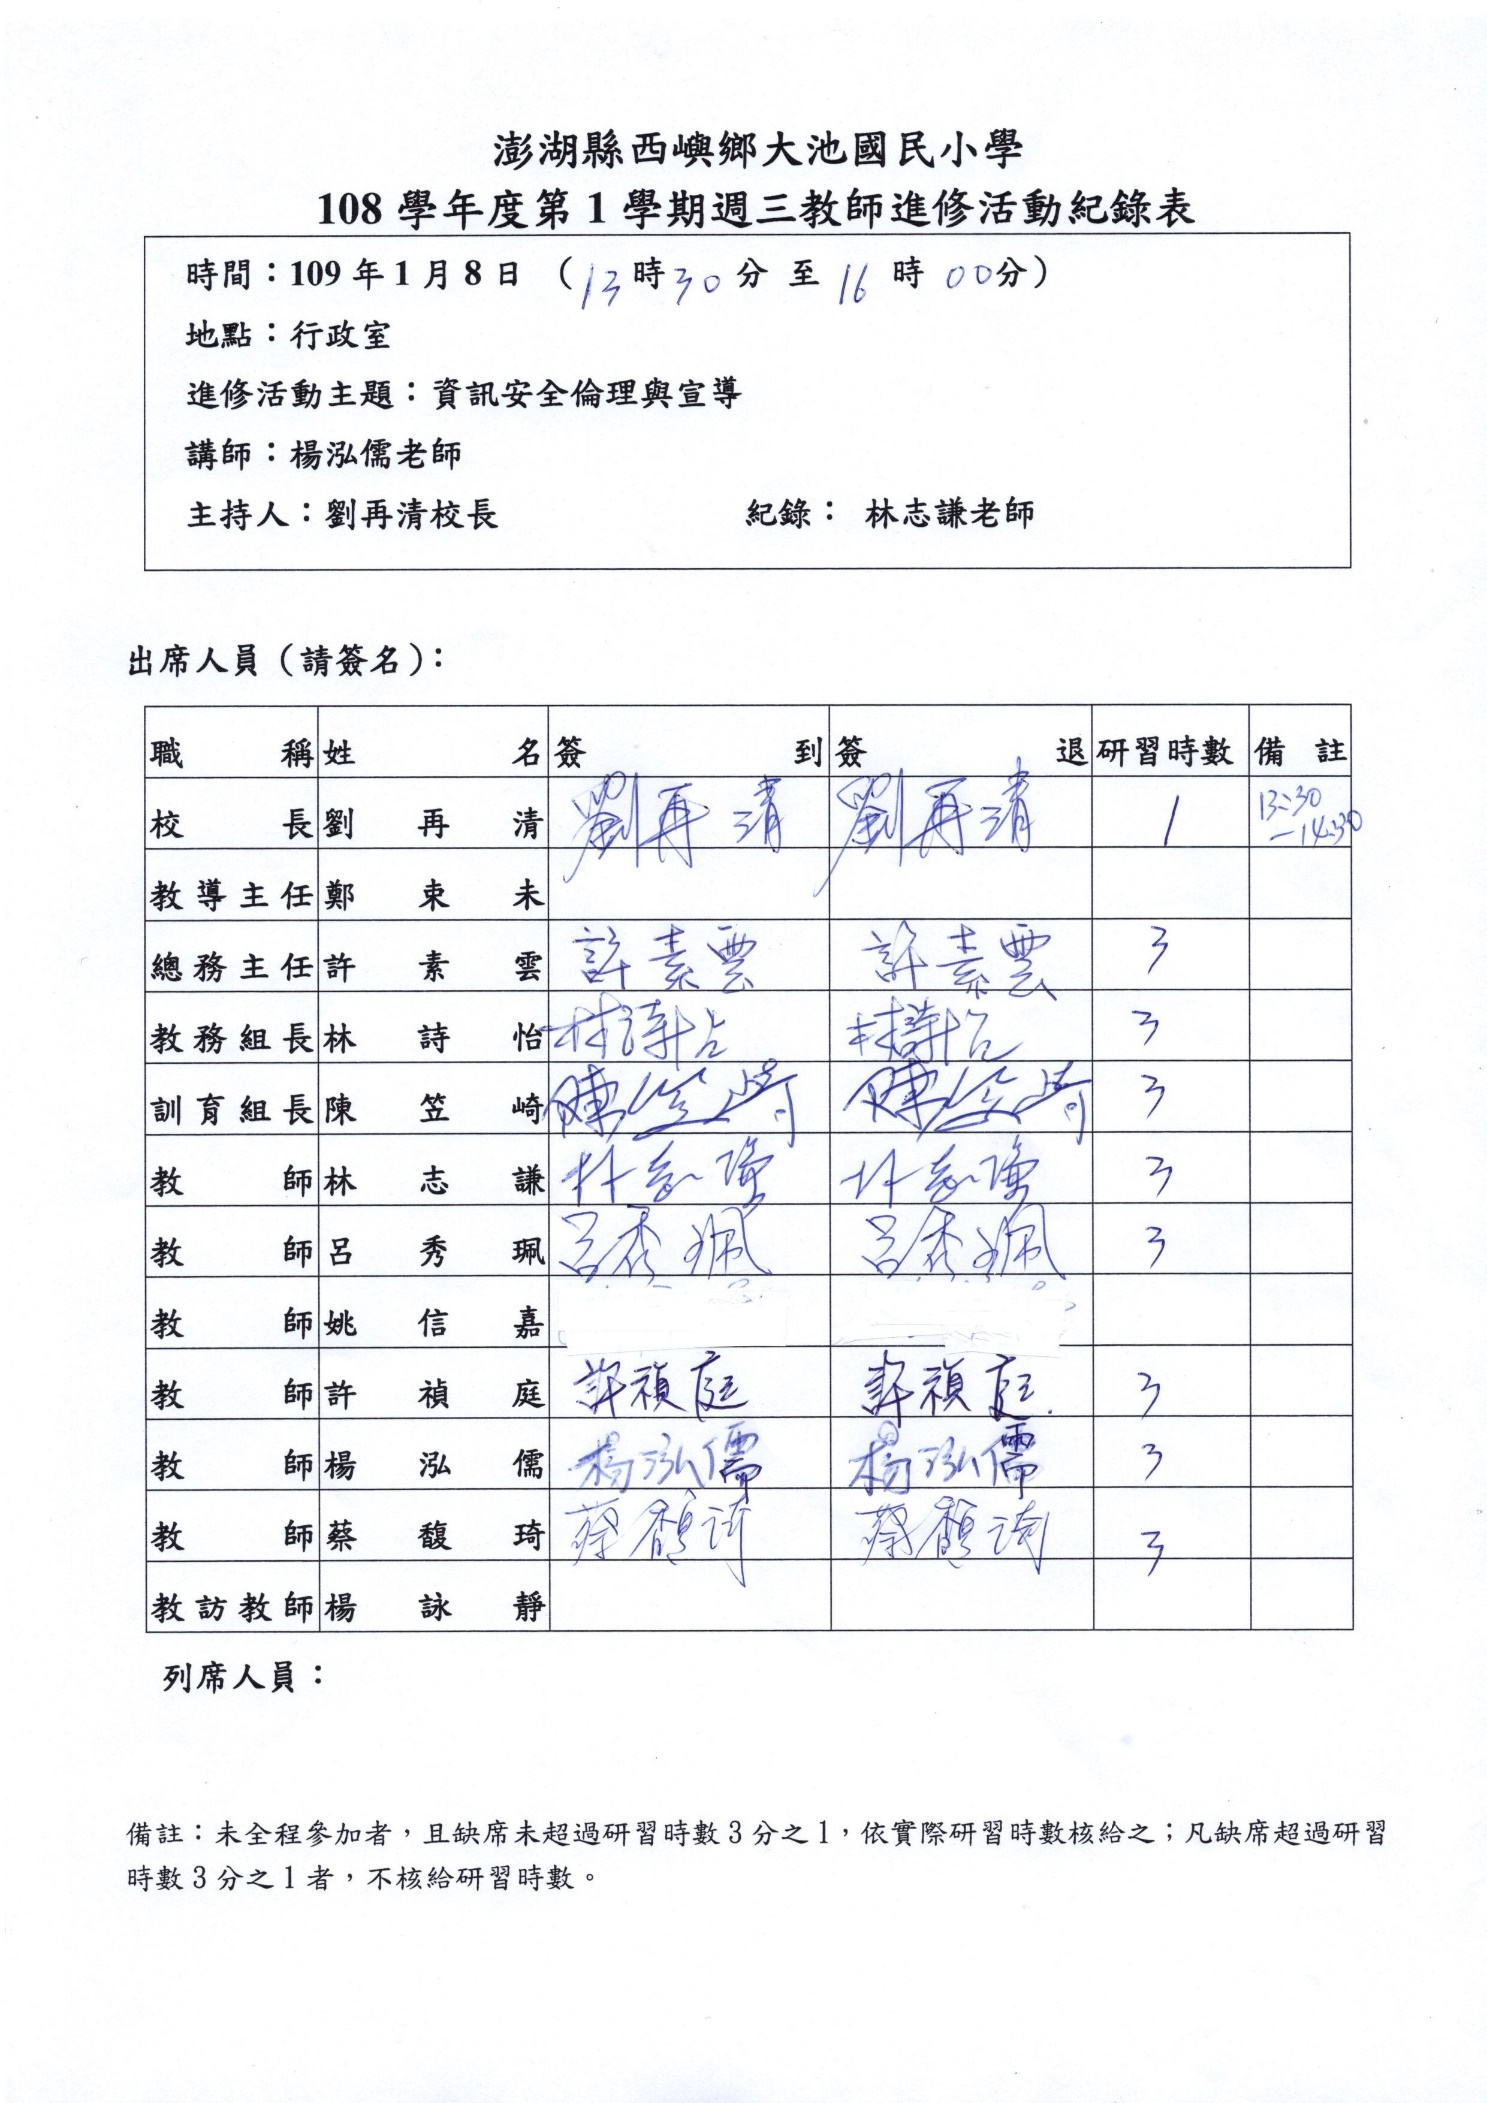 澎湖縣西嶼鄉大池國民小學
108 學年度第 1 學期週三教師進修活動紀錄表
時間：109 年 1 月 8 日 （13 時 30 分 至 16 時 00 分）
地點：行政室
進修活動主題：資訊安全倫理與宣導
講師：楊泓儒老師
主持人：劉再清校長 紀錄： 林志謙老師
出席人員（請簽名）：
職稱 姓名 簽到 簽退 研習時數 備註
校長 劉再清 劉再清 劉再清 1 13:30
－14:30
教導主任 鄭束未
總務主任 許素雲 許素雲 許素雲 3
教務組長 林詩怡 林詩怡 林詩怡 3
訓育組長 陳笠崎 陳笠崎 陳笠崎 3
教師 林志謙 林志謙 林志謙 3
教師 呂秀珮 呂秀珮 呂秀珮 3
教師 姚信嘉
教師 許禎庭 許禎庭 許禎庭 3
教師 楊泓儒 楊泓儒 楊泓儒 3
教師 蔡馥琦 蔡馥琦 蔡馥琦 3
教訪教師 楊詠靜
列席人員：
備註：未全程參加者，且缺席未超過研習時數 3 分之 1，依實際研習時數核給之；凡缺席超過研習
時數 3 分之 1 者，不核給研習時數。